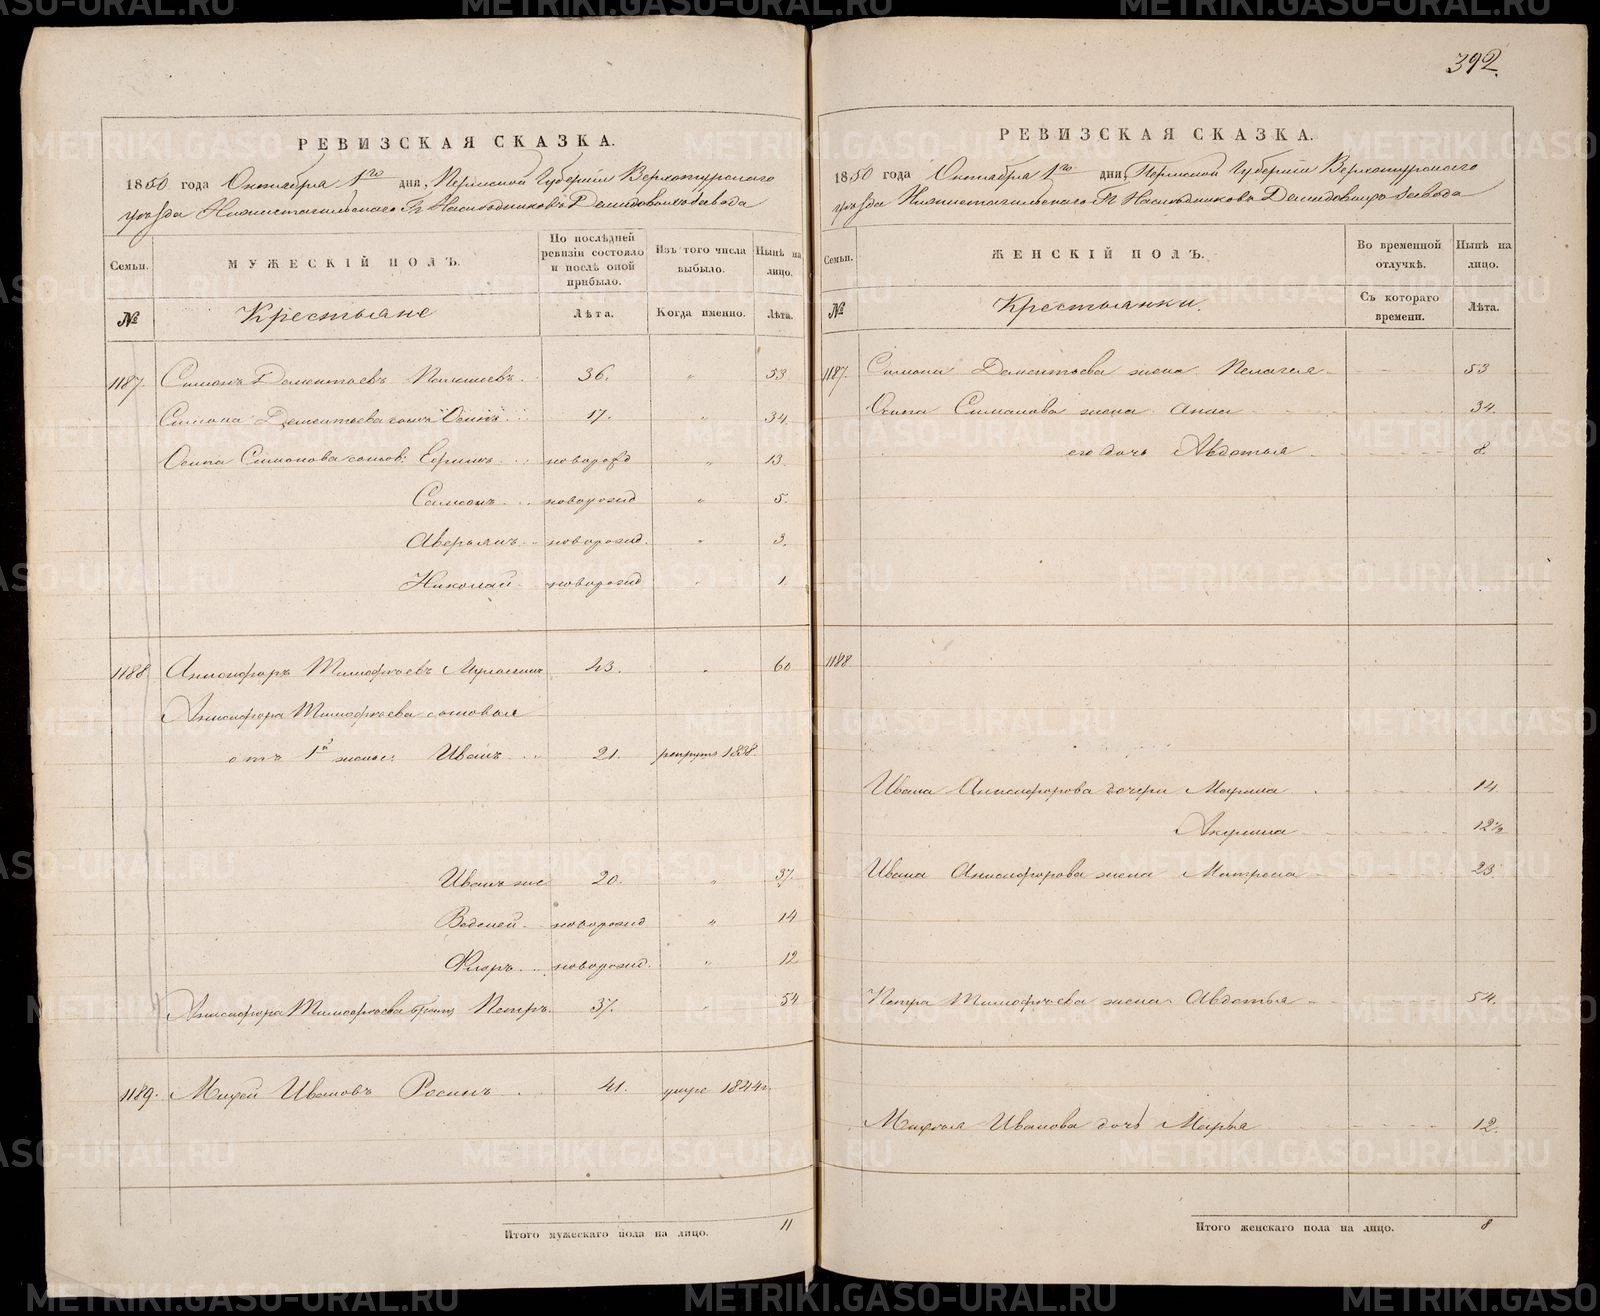 392.
РЕВИЗСКАЯ СКАЗКА.
1850 года Октября 1го дня, Пермской Губернiи Верхотурскаго
уѣзда Нижнетагильскаго Гг Наслѣдниковъ Демидовыхъ завода
Семьи.
МУЖЕСКIЙ ПОЛЪ.
По послѣдней ревизiи состояло и послѣ оной прибыло.
Изъ того числа выбыло.
Нынѣ на лицо.
№
Крестьяне
Лѣта.
Когда именно.
Лѣта.
1187. Симонъ Дементьевъ 36. " 53.
Симона Дементьева сынъ Осипъ 17. " 34.
Осипа Симонова сынов: Ефимъ новорожд " 13.
Симонъ новорожд " 5.
Аверьянъ новорожд. " 3.
Николай новорожд " 1
1188 Анисифоръ Тимофѣевъ 43. " 60
Анисифора Тимофѣева сыновья
отъ 1й жены: Иванъ 21. рекрутъ 1838.
Иванъ же 20. " 37.
Веденей новорожд " 14
Флоръ новорожд. " 12
Анисифора Тимофѣева братъ Петръ. 37. " 54
1189. Михей Ивановъ Росинъ 41. умре 1844 г.
Итого мужескаго пола на лицо. 11
РЕВИЗСКАЯ СКАЗКА.
1850 года Октября 1го дня, Пермской Губернiи Верхотурскаго
уѣзда Нижнетагильскаго Гг Наслѣдниковъ Демидовыхъ завода
Семьи.
ЖЕНСКIЙ ПОЛЪ.
Во временной отлучкѣ.
Нынѣ на лицо.
№
Крестьянки.
Съ котораго времени.
Лѣта.
1187. Симона Дементьева жена Пелагея 53
Осипа Симонова жена Анна 34.
его дочь Авдотья 8.
1188
Ивана Анисифорова дочери Марина 14
Акулина 12½
Ивана Анисифорова жена Матрена 23
Петра Тимофѣева жена Авдотья 54.
Михея Иванова дочь Марья 12.
Итого женскаго пола на лицо. 8
METRIKI.GASO-URAL.RU